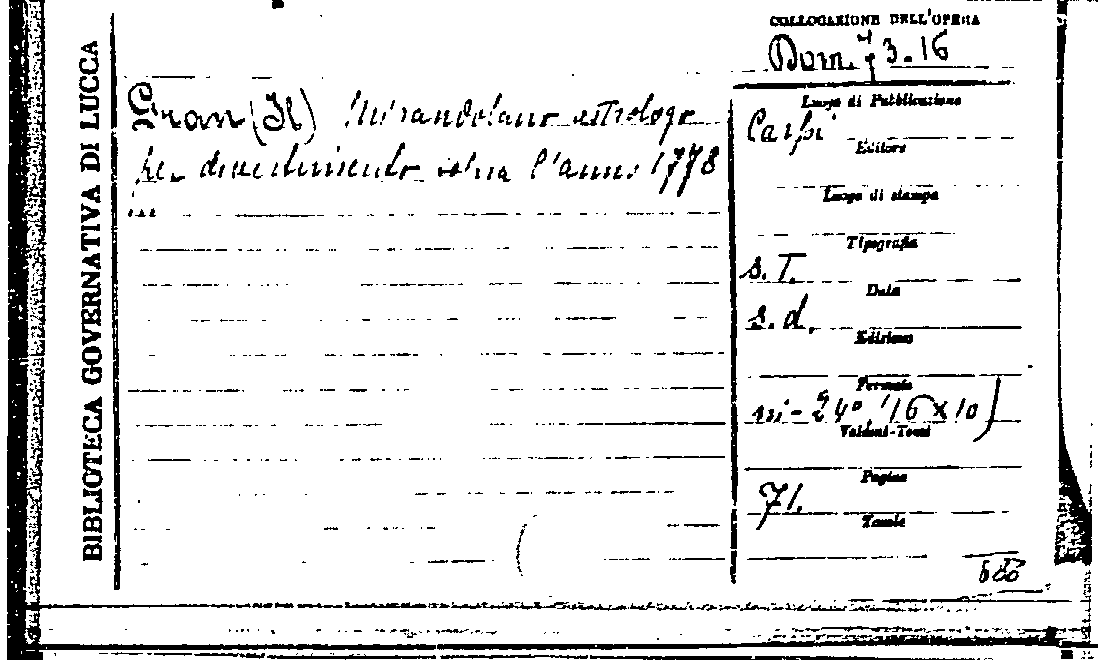 BIBLIOTECA GOVERNATIVA DI LUCCA
COLLOCAZIONE DELL'OPERA
Dom. 73.16
Gran (Il) Mirandolano astrologo
per divertimento sopra l'anno 1778
...
Luogo di Pubblicazione
Carpi
Editore
Luogo di stampa
Tipografia
s.T.
Data
s.d.
Edizione
Formato
in-24° (16x10)
Volumi-Tomi
Pagine
71.
Tavole